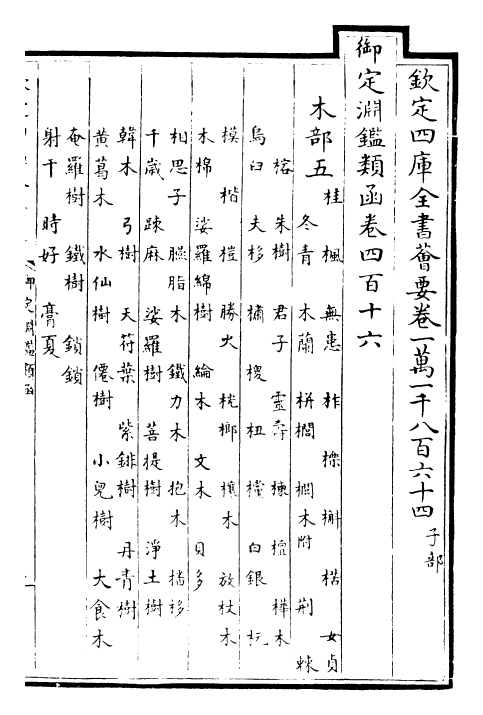 欽定四庫全書薈要卷一萬一千八百六十四 子部
御定淵鑑類函卷四百十六
木部五
桂 楓 無患 柞 櫟 槲 楛 女貞
冬青 木蘭 栟櫚 櫚木附 荆 棘
榕 朱樹 君子 靈壽 楝 檀 樺木
烏臼 夫栘 橚 㮨 杻 檔 白銀 杬
模 楷 榿 勝火 桄榔 櫰木 放杖木
木棉 娑羅綿樹 綸木 文木 貝多
相思子 臙脂木 鐵力木 抱木
千歲 踈麻 娑羅樹 菩提樹 淨土樹
韓木 弓樹 天符葉 紫緋樹 丹青樹
黄葛木 水仙樹 僊樹 小兒樹 大食木
奄羅樹 鐵樹 鎖鎖
射干 時好 膏夏
御定淵鑑類函